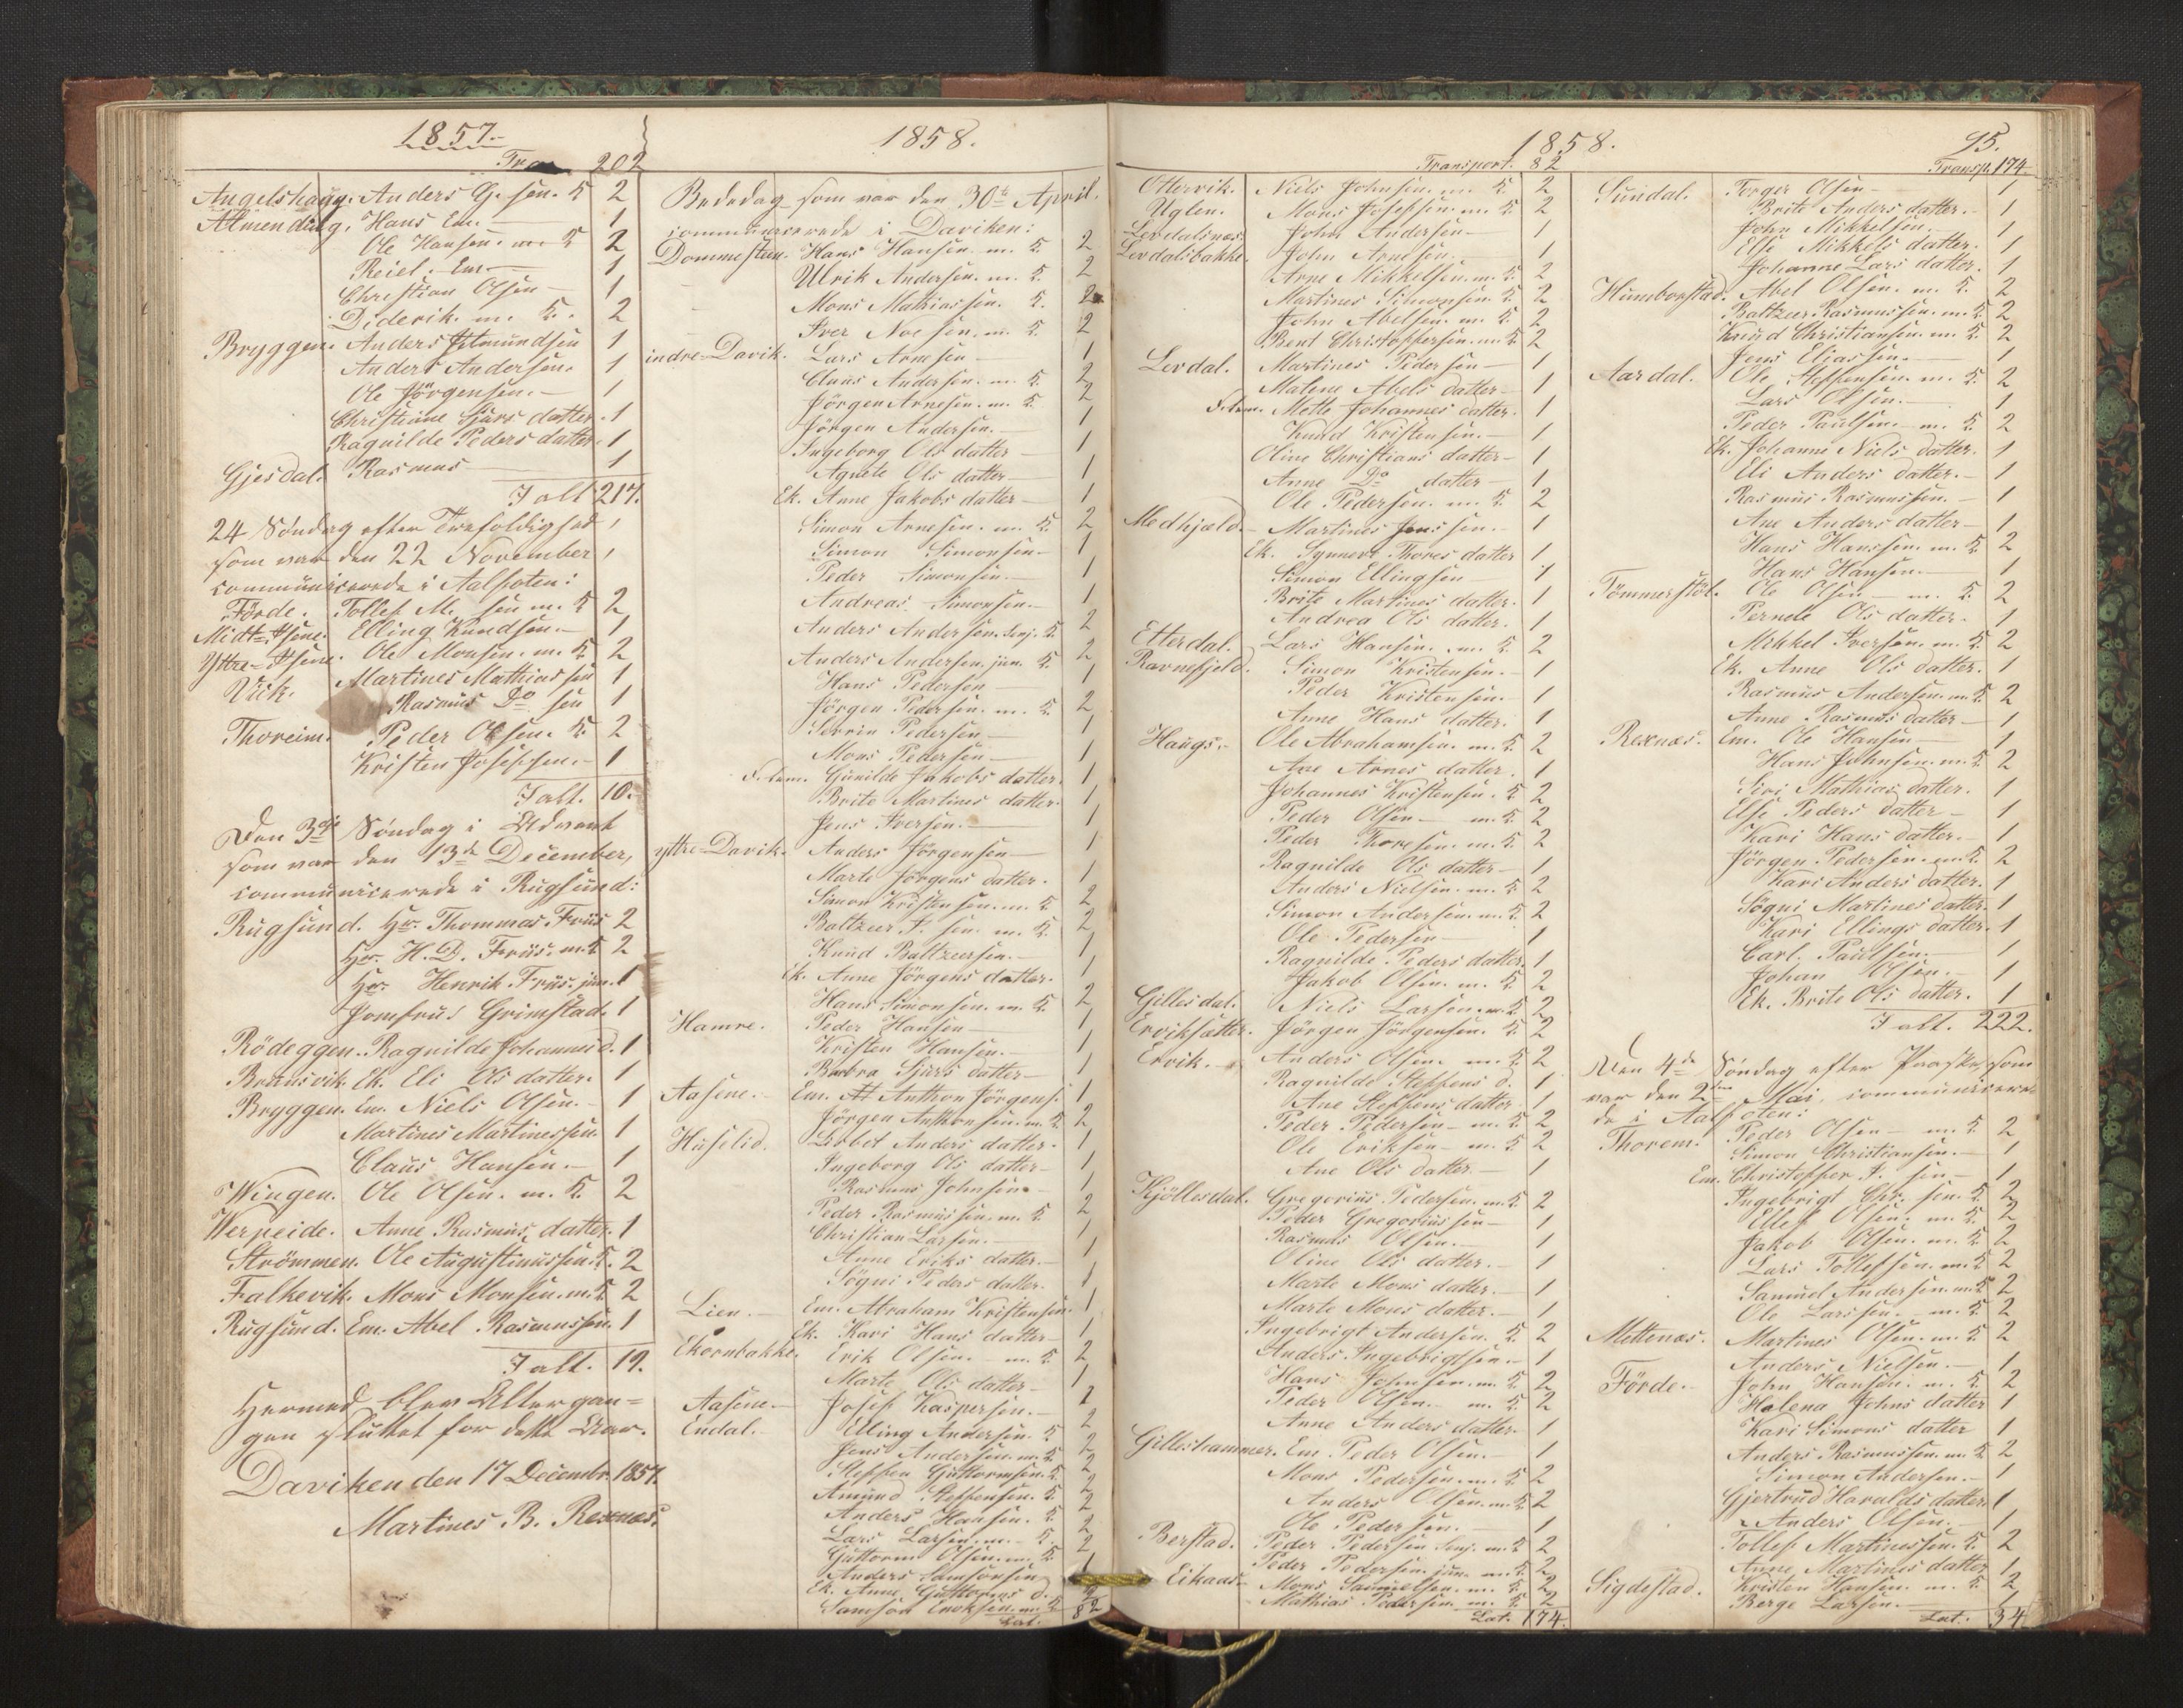 1857.
Tra 202
Augelshaug. Anders G. sen. K 2
Almending. Hans Em. 1
Ole Hansen. m. K 2
Reiel. Em. 1
Christian Olsen 1
Diderik. m. K. 2
Bryggen. Anders Amundsen 1
Anders Andersen. 1
Ole Jörgensen. 1
Christiane Sjurs datter. 1
Ragnilde Peders datter 1
Gjesdal. Rasmus 1
I alt 217.
24 Söndag efter Trefoldighed
som var den 22 November
communicerede i Aalfoten:
Förde. Tollef M. sen m. K 2
Midt-Aasene. Elling Knudsen. 1
Yttre-Aasene. Ole Monsen. m. K 2
Vik. Martines Mathiassen 1
Rasmus Do sen 1
Thoreim. Peder Olsen. K 2
Kristen Josefsen. 1
I alt. 10.
Den 3die Söndag i Advent
som var den 13de December,
communicerede i Rugsund:
Rugsund. Hr. Thommas Friis 2
Hr. H. D. Friis. m. K 2
Hr. Henrik Friis. jun. 1
Jomfru Grimstad. 1
Rödeggen. Ragnilde Johannes d. 1
Bruusvik. Ek. Eli Ols datter. 1
Bryggen. Em. Niels Olsen. 1
Martines Martinessen. 1
Claus Hansen. 1
Wingen. Ole Olsen. m. K. 2
Werpeide. Anne Rasmus datter. 1
Strömmen. Ole Augustinussen. K. 2
Falkevik. Mons Monsen. m. K 2
Rugsund. Em. Abel Rasmussen. 1
I alt. 19.
Hermed blev Altergan=
gen sluttet for dette Aar.
Daviken den 17 Decembr. 1857.
Martines B. Rexnæs.
1858.
Bededag som var den 30te April.
communicerede i Daviken:
Dommesten. Hans Hansen. m. K. 2
Ulrik Andersen. m. K. 2
Mons Mathiassen. K. 2
Iver Noesen. m. K. 2
indre-Davik. Lars Arnesen 1
Claus Andersen. m. K. 2
Jörgen Arnesen. m. K. 2
Jörgen Andersen. 1
Ingeborg Ols datter 1
Agnete Ols datter 1
Ek. Anne Jakobs datter 1
Simon Arnesen. m. K. 2
Simon Simonsen 1
Peder Simonsen. 1
Andreas Simonsen. 1
Anders Andersen. Senj. K. 2
Anders Andersen. jun. K. 2
Hans Pedersen 1
Jörgen Pedersen. m. K. 2
Serrin Pedersen 1
Mons Pedersen 1
Gunilde Jakobs datter. 1
Brite Martines datter. 1
Jens Iversen. 1
yttre-Davik. Anders Jörgensen 1
Marte Jörgens datter. 1
Simon Kristensen. m. K. 2
Baltzer F. sen. m. K. 2
Knud Baltzersen. 1
Ek. Anne Jörgens datter. 1
Hans Simonsen. m. K. 2
Hamre. Peder Hansen 1
Kristen Hansen. 1
Barbra Sjurs datter 1
Aasene. Em. Anthon Jörgens. 1
Jörgen Anthonsen. m. K 2
Huselid. Lisbet Anders datter. 1
Ingeborg Ols datter 1
Rasmus Johnsen 1
Peder Rasmussen. m. K. 2
Christian Larsen. 1
Anne Eriks datter. 1
Sögni Peders datter. 1
Lien. Em. Abraham Kristensen. 1
Ek. Kari Hans datter 1
Ekornbakke. Erik Olsen. m. K. 2
Marte Ols datter 1
Aasene. Josef Kaspersen. 1
Endal. Elling Andersen. K 2
Jens Andersen. m. K 2
Steffen Guttormsen. K. 2
Amund Steffensen. K. 2
Anders Hansen. K. 2
Lars Larsen. m. K. 2
Guttorm Olsen. m. K. 2
Anders Samsonsen 1
Ek. Anne Guttorms d. 2
Samson Enoksen. m. K
Lat. 82
1858.
Transport. 82
Ottervik. Niels Johnsen. m. K. 2
Uglen. Mons Josefsen. m. K 2
Levdalsnæs. John Andersen 1
Levdalsbakke. John Arnesen. 1
Arne Mikkelsen. m. K 2
Martines Simonsen. K. 2
John Abelsen. m. K. 2
Bent Christoffersen. m. K 2
Levdal. Martines Pedersen 1
Malene Abels datter 1
Mette Johannes datter. 1
Knud Kristensen. 1
Oline Christians datter 1
Anne Do datter 1
Ole Pedersen. m. K. 2
Medhjæld. Martines Jenssen. 1
Ek. Synneve Thores datter 1
Simon Ellingsen 1
Brite Martines datter. 1
Andrea Ols datter. 1
Etterdal. Lars Hansen. m. K 2
Ravnefjeld. Simon Kristensen. 1
Peder Kristensen. 1
Anne Hans datter. 1
Haugs. Ole Abrahamsen. m. K. 2
Ane Arnes datter. 1
Johannes Kristensen. K. 2
Peder Olsen m. K 2
Peder Thoresen. m. K. 2
Ragnilde Ols datter 1
Anders Nielsen. m. K. 2
Simon Andersen. m. K. 2
Ole Pedersen 1
Ragnilde Peders datter. 1
Jakob Olsen. m. K. 2
Gillesdal. Niels Larsen. m. K 2
Erviksætter. Jörgen Jörgensen. K. 2
Ervik. Anders Olsen. m. K. 2
Ragnilde Steffens d. 1
Ane Steffens datter 1
Peder Pedersen m. K 2
Ole Eriksen m. K 2
Ane Ols datter. 1
Kjöllesdal. Gregorius Pedersen. m. K 2
Peder Gregoriussen 1
Rasmus Olsen. 1
Oline Ols datter. 1
Marte Mons datter. 1
Marte Mons datter. 1
Ingebrigt Andersen. K. 2
Anders Ingebrigtsen. 1
Hans Johnsen. m. K 2
Peder Olsen. m. K 2
Anne Anders datter. 1
Gilleshammer. Em. Peder Olsen. 1
Mons Pedersen. m. K. 2
Anders Olsen. m. K 2
Ole Pedersen. 1
Berstad. Peder Pedersen Senj. m. K 2
Peder Pedersen jun. m. K 2
Eikaas. Mons Samuelsen. m. K 2
Mathias Pedersen. m. K 2
Lat. 174.
95.
Transp. 174
Sundal. Torger Olsen 1
Brite Anders datter. 1
John Mikkelsen. 1
Else Mikkels datter. 1
Johanne Lars datter. 1
Humborstad. Abel Olsen. m. K. 2
Baltzer Rasmussen. m. K 2
Knud Christiansen. m. K 2
Jens Eliassen. 1
Aardal. Ole Steffensen. m. K. 2
Lars Olsen. 1
Peder Paulsen m. K 2
Ek. Johanne Niels datter. 1
Eli Anders datter. 1
Rasmus Rasmussen. 1
Ane Anders datter 1
Hans Hanssen. m. K 2
Hans Hansen. 1
Tömmerstöl. Ole Olsen m. K. 2
Pernele Ols datter. 1
Mikkel Iversen. m. K 2
Ek. Anne Ols datter. 1
Rasmus Andersen. m. K 2
Anne Rasmus datter 1
Rexnæs. Em. Ole Hansen 1
Hans Johnsen. m. K 2
Siri Mathias datter. 1
Else Peders datter 1
Kari Hans datter. 1
Jörgen Pedersen. m. K. 2
Kari Anders datter. 1
Sögni Martines datter. 1
Kari Ellings datter. 1
Carl. Paulsen. 1
Johan Olsen. 1
Ek. Brite Ols datter. 1
I alt. 222.
Den 4de Söndag efter Paaske, som
var den 2den Mai, communicere-
de i Aalfoten:
Thorem. Peder Olsen m. K. 2
Simon Christiansen. 1
Em. Christoffer F. sen 1
Ingebrigt Chr. sen. K. 2
Ellef Olsen. m. K. 2
Jakob Olsen. m. K 2
Lars Tollefsen. m. K 2
Samuel Andersen. m. K 2
Ole Larsen. m. K 2
Mettenæs. Martines Olsen. m. K 2
Anders Nielsen. 1
Förde. John Hansen. m. K 2
Helena Johns datter 1
Kari Simons datter 1
Anders Rasmussen. m. K 2
Simon Andersen. 1
Gjertrud Haralds datter. 1
Anders Olsen. 1
Tollef Martinessen. K. 2
Anne Martines datter 1
Sigdestad. Kristen Hansen. m. K. 2
Berge Larsen. 1
Lat. 34